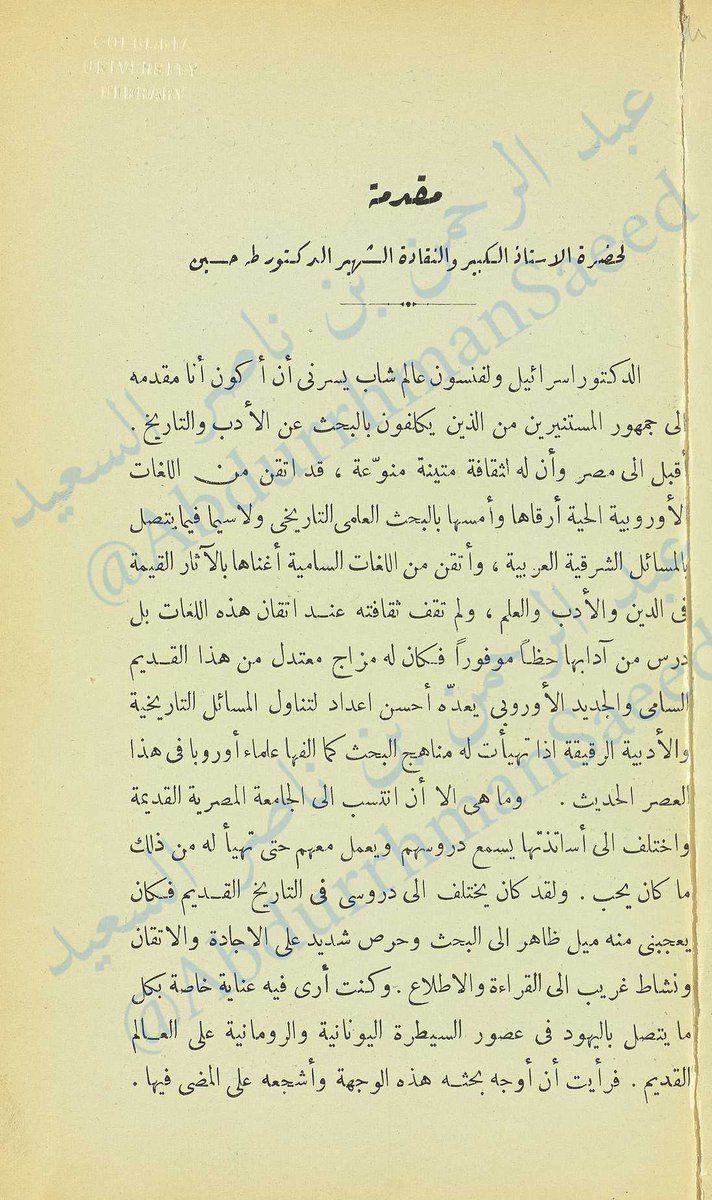 COLUMBIA
UNIVERSITY
LIBRARY
مقدمة
لحضرة الاستاذ الكبير والنقادة الشهير الدكتور طه حسين
الدكتور اسرائيل ولفنسون عالم شاب يسرنى أن أكون أنا مقدمه
الى جمهور المستنيرين من الذين يكلفون بالبحث عن الأدب والتاريخ .
أقبل الى مصر وأن له لثقافة متينة منوّعة ، قد اتقن من اللغات
الأوروبية الحية أرقاها وأمسها بالبحث العلمى التاريخى ولاسيما فيما يتصل
بالمسائل الشرقية العربية ، وأتقن من اللغات السامية أغناها بالآثار القيمة
فى الدين والأدب والعلم ، ولم تقف ثقافته عند اتقان هذه اللغات بل
درس من آدابها حظاً موفوراً فكان له مزاج معتدل من هذا القديم
السامى والجديد الأوروبى يعدّه أحسن اعداد لتناول المسائل التاريخية
والأدبية الرقيقة اذا تهيأت له مناهج البحث كما الفها علماء أوروبا فى هذا
العصر الحديث . وما هى الا أن انتسب الى الجامعة المصرية القديمة
واختلف الى أساتذتها يسمع دروسهم ويعمل معهم حتى تهيأ له من ذلك
ما كان يحب . ولقد كان يختلف الى دروسى فى التاريخ القديم فكان
يعجبنى منه ميل ظاهر الى البحث وحرص شديد على الاجادة والاتقان
ونشاط غريب الى القراءة والاطلاع . وكنت أرى فيه عناية خاصة بكل
ما يتصل باليهود فى عصور السيطرة اليونانية والرومانية على العالم
القديم . فرأيت أن أوجه بحثه هذه الوجهة وأشجعه على المضى فيها .
عبد الرحمن بن ناصر السعيد
@AbdurrhmanSaeed
عبد الرحمن بن ناصر السعيد
@AbdurrhmanSaeed